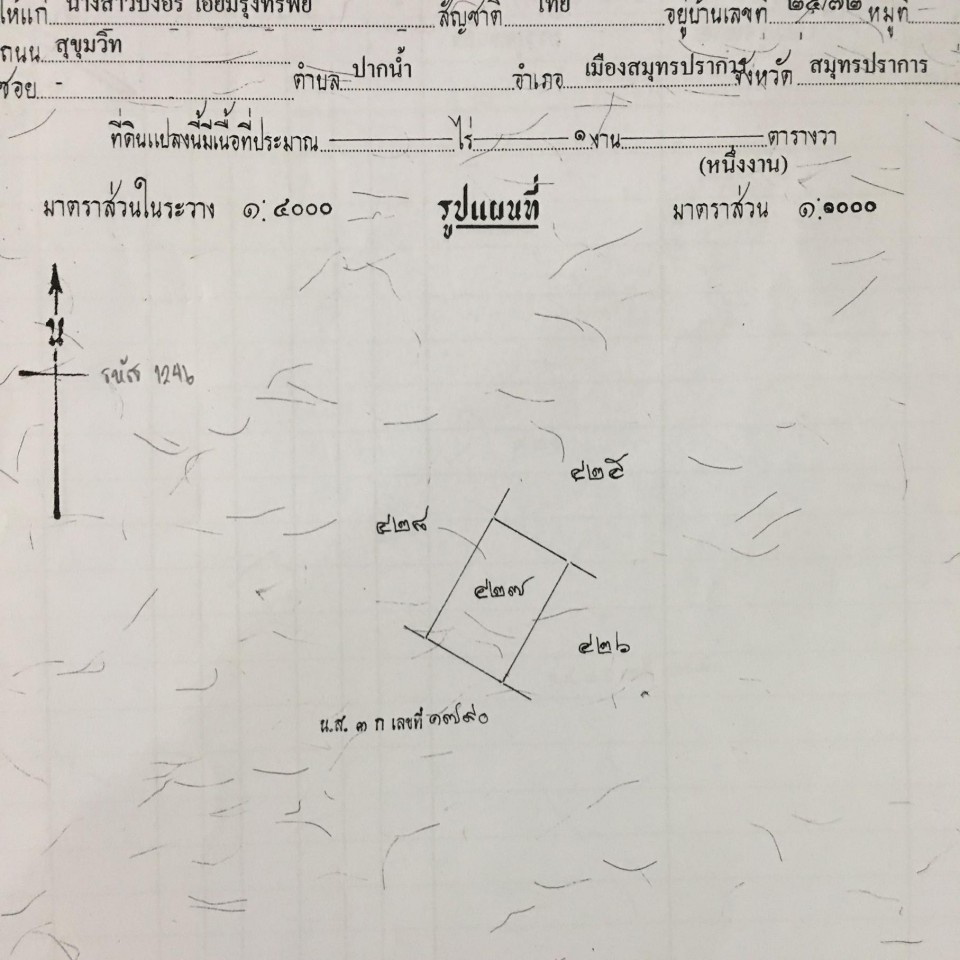 ให้แก่ นางสาวบังอร เอี่ยมรุ่งทรัพย์ สัญชาติ ไทย อยู่บ้านเลขที่ ๒๔/๗๒ หมู่ที่
ถนน สุขุมวิท
ซอย - ตำบล ปากน้ำ อำเภอ เมืองสมุทรปราการ จังหวัด สมุทรปราการ
ที่ดินแปลงนี้มีเนื้อที่ประมาณ ไร่ ๑ งาน ตารางวา
(หนึ่งงาน)
มาตราส่วนในระวาง ๑:๔๐๐๐ รูปแผนที่ มาตราส่วน ๑:๑๐๐๐
น
รหัส 1246
๔๒๕
๔๒๘
๔๒๗
๔๒๖
น.ส. ๓ ก เลขที่ ๑๗๙๐